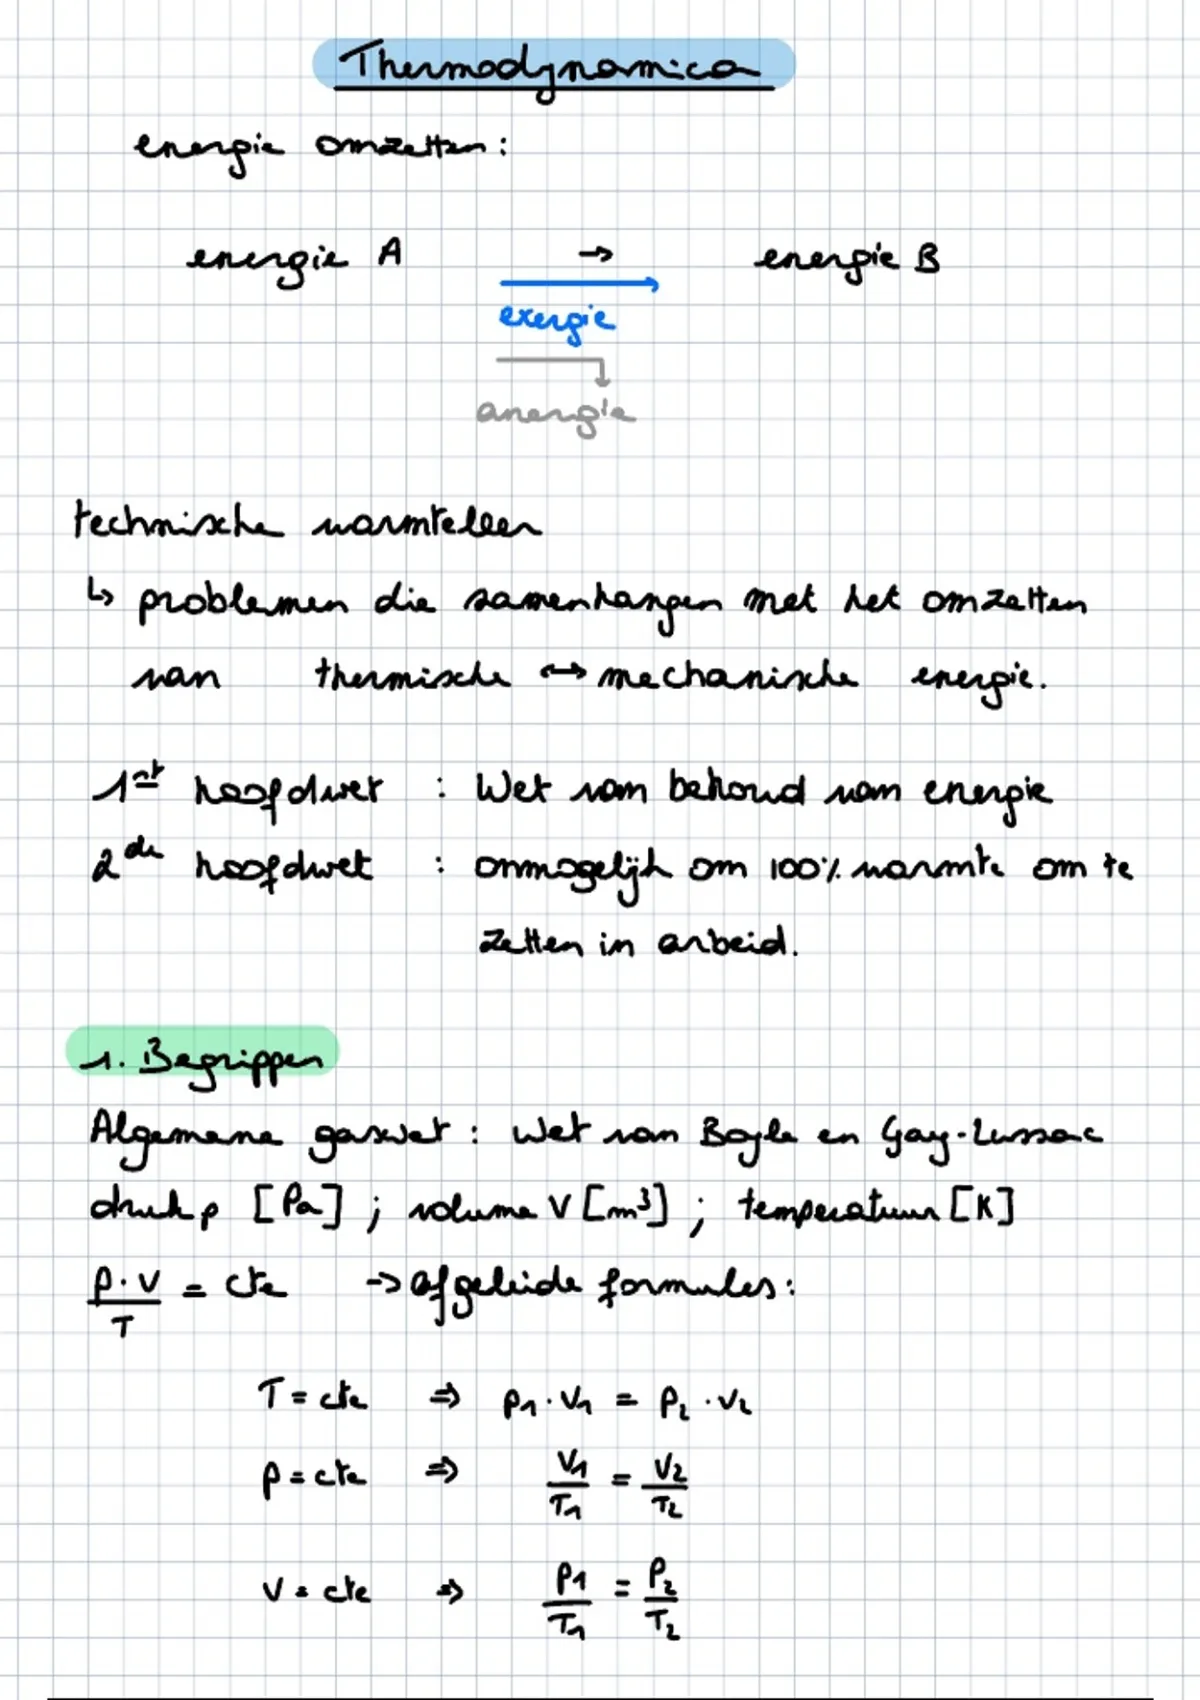 Thermodynamica
energie omzetten:
energie A → energie B
exergie
anergie
technische warmteleer
↳ problemen die samenhangen met het omzetten
van thermische ↔ mechanische energie.
1st hoofdwet : Wet van behoud van energie
2de hoofdwet : onmogelijk om 100% warmte om te
zetten in arbeid.
1. Begrippen
Algemene gaswet : Wet van Boyle en Gay-Lussac
druk p [Pa] ; volume V [m³] ; temperatuur [K]
p·V/T = cte → afgeleide formules:
T = cte ⇒ p₁·V₁ = p₂·V₂
p = cte ⇒ V₁/T₁ = V₂/T₂
V = cte ⇒ p₁/T₁ = p₂/T₂